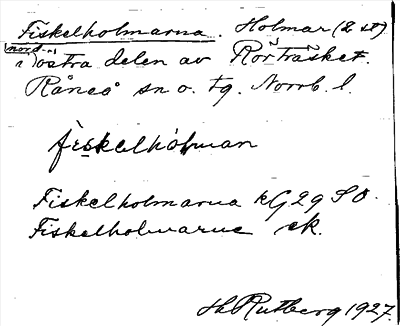 Fiskelholmarna. Holmar (2 st)
i nord-östra delen av Rörträsket.
Råneå sn o. tg. Norrb. l.
fiskelhólman
Fiskelholmarna kG 29 SO.
Fiskelholmarne ek.
Hh Rutberg 1927.